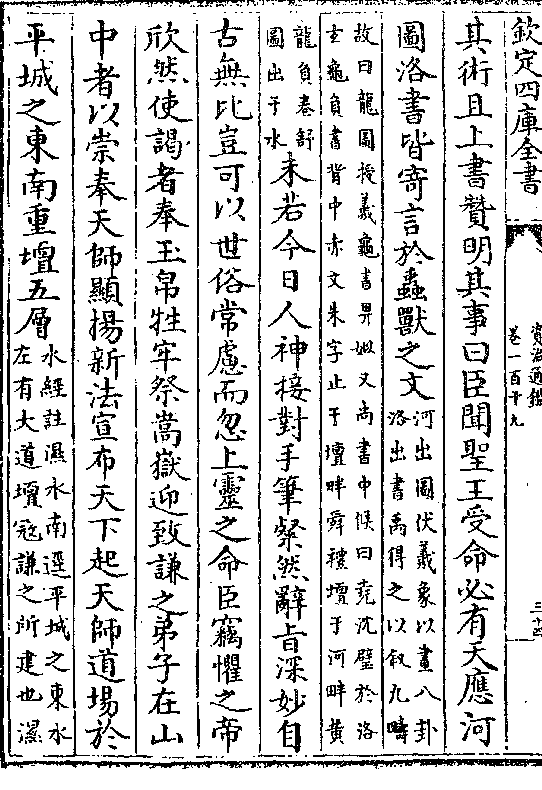 欽定四庫全書
資治通鑑
卷一百十九
三十四
其術且上書贊明其事曰臣聞聖王受命必有天應河
圖洛書皆寄言於蟲獸之文
河出圖伏羲象以畫八卦
洛出書禹得之以叙九疇
故曰龍圖授羲龜書畀姒又尚書中候曰堯沈璧於洛
玄龜負書背中赤文朱字止于壇畔舜禮壇于河畔黄
龍負卷舒
圖出于水
未若今日人神接對手筆粲然辭旨深妙自
古無比豈可以世俗常慮而忽上靈之命臣竊懼之帝
欣然使謁者奉玉帛牲牢祭嵩嶽迎致謙之弟子在山
中者以崇奉天師顯揚新法宣布天下起天師道場於
平城之東南重壇五層
水經註濕水南逕平城之東水
左有大道壇冦謙之所建也濕